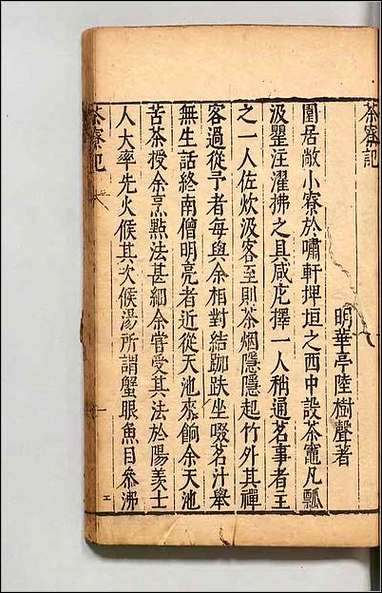 茶寮記
明華亭陸樹聲著
園居敞小寮於嘯軒埤垣之西中設茶竈凡瓢
汲罌注濯拂之具咸庀擇一人稍通茗事者主
之一人佐炊汲客至則茶烟隱隱起竹外其禪
客過從予者每與余相對結跏趺坐啜茗汁舉
無生話終南僧明亮者近從天池來餉余天池
苦茶授余烹點法甚細余嘗受其法於陽羨士
人大率先火候其次候湯所謂蟹眼魚目參沸
茶寮記
一